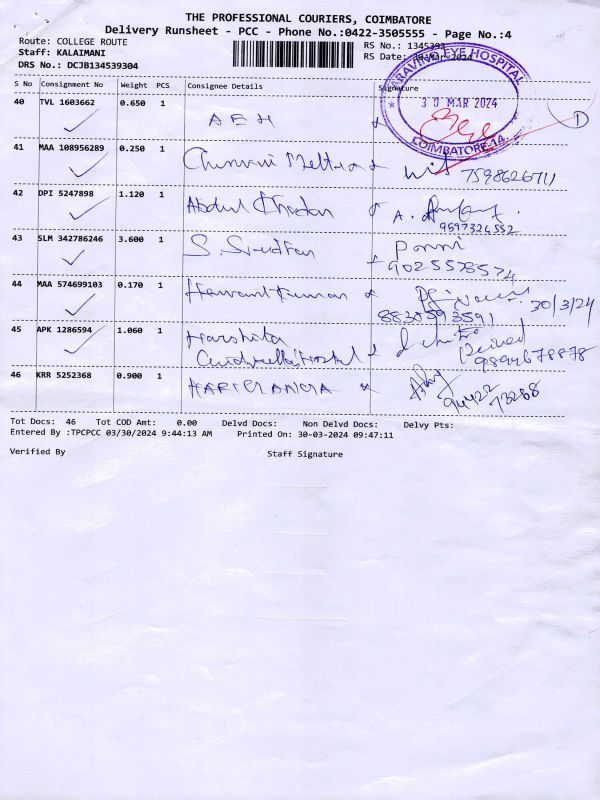 THE PROFESSIONAL COURIERS, COIMBATORE
Delivery Runsheet - PCC - Phone No.:0422-3505555 - Page No.:4
Route: COLLEGE ROUTE
Staff: KALAIMANI
DRS No.: DCJB134539304
RS No.: 1345393
RS Date: 30 Mar 2024
S No Consignment No Weight PCS Consignee Details Signature
ARAVIND EYE HOSPITAL
30 MAR 2024
COIMBATORE-14.
40 TVL 1603662 0.650 1 AEH 1
41 MAA 108956289 0.250 1 7598626711
42 DPI 5247898 1.120 1 Abdul A.
9597324552
43 SLM 342786246 3.600 1 S. Sreedhar Ponni
9025578574
44 MAA 574699103 0.170 1 Hemant Kumar 30/3/24
8830593591
45 APK 1286594 1.060 1 Harshita
Hostel 9894678878
46 KRR 5252368 0.900 1 HARI
94422 73268
Tot Docs: 46 Tot COD Amt: 0.00 Delvd Docs: Non Delvd Docs: Delvy Pts:
Entered By :TPCPCC 03/30/2024 9:44:13 AM Printed On: 30-03-2024 09:47:11
Verified By Staff Signature